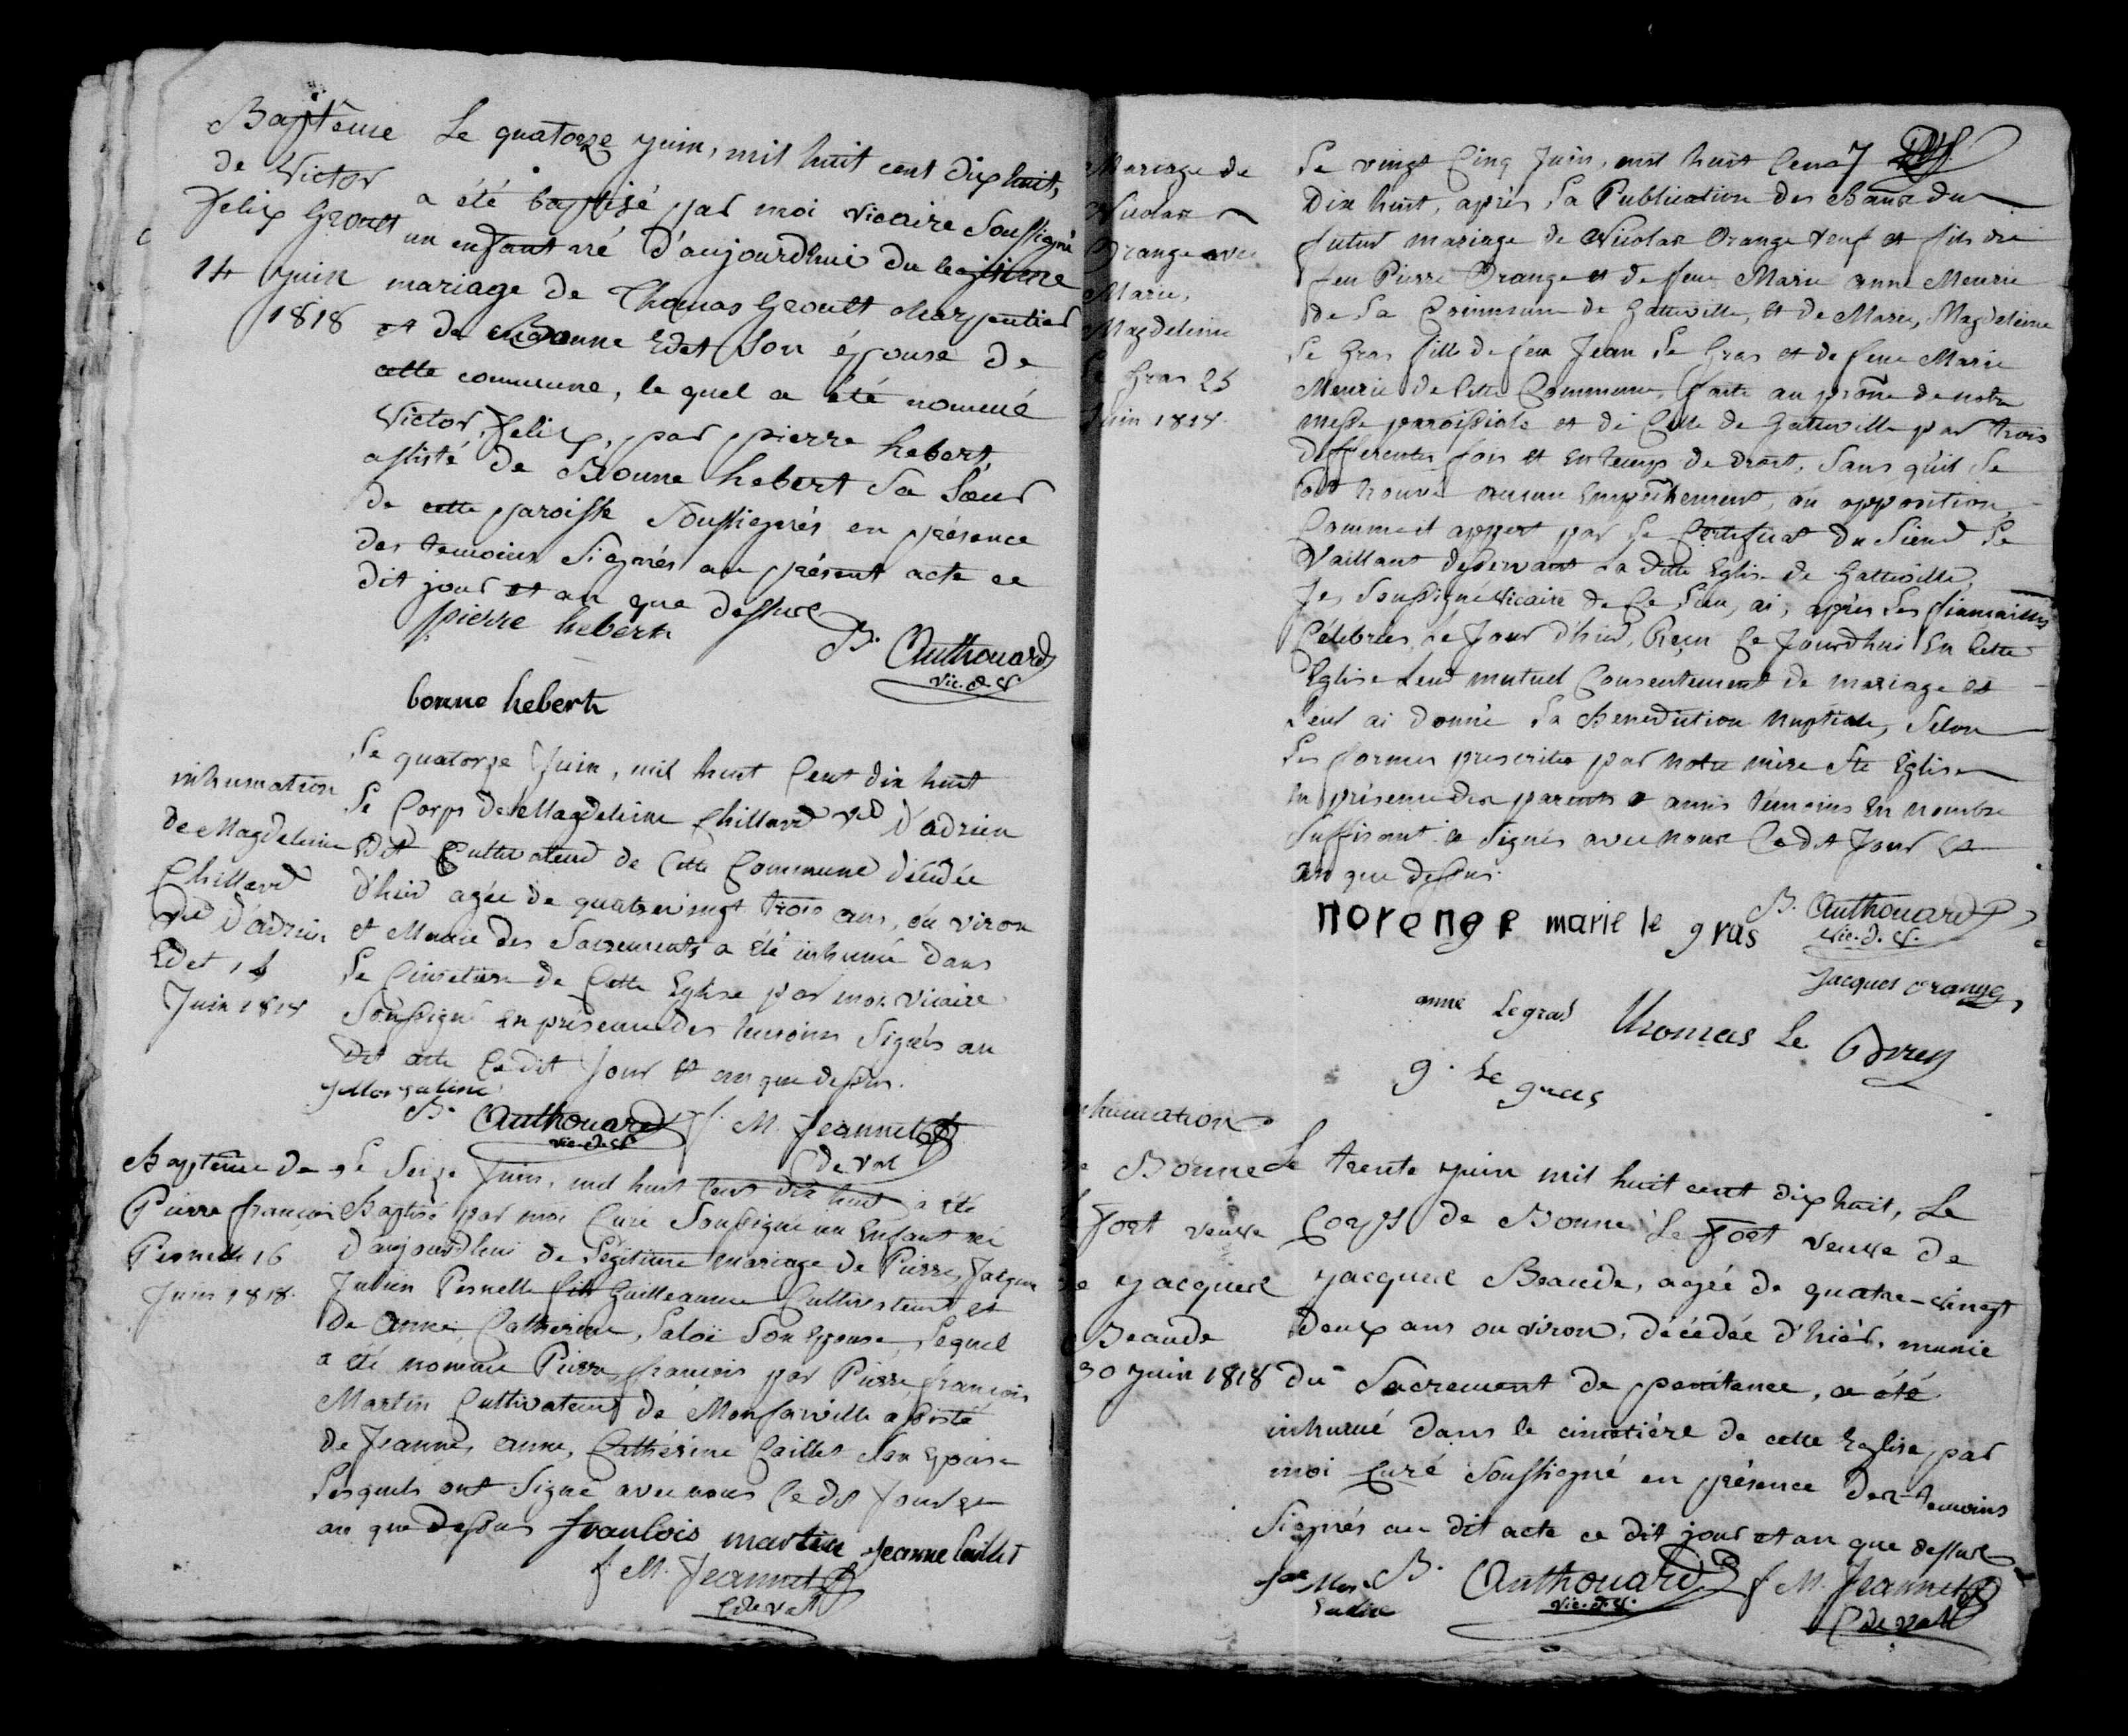 Baptême
de Victor
felix Groult
14 juin
1818
Le quatorze juin, mil huit cent dix huit,
a été baptisé par moi vicaire Soussigné
un enfant né d'aujourdhui du legitime
mariage de Thomas Groult charpentier
et de Bonne Edet Son épouse de
cette commune, le quel a été nommé
Victor, felix, par pierre hebert
assisté de Bonne hebert Sa Sœur
de cette paroisse Soussignés en présence
des temoins Signés au présent acte ce
dit jour et an que dessus
pierre hebert
B. Authouard
vic. d. V.
bonne hebert
inhumation
de Magdeleine
Chillard
Ve d'adrien
Edet 14
Juin 1818
Le quatorze Juin, mil huit Cent dix huit
Le Corps de Magdeleine Chillard Ve d'adrien
Edet Cultivateur de Cette Commune décédée
d'hier agée de quatrevingt trois ans, ou viron
et Munie des Sacrements a été inhumé dans
Le Cimetiere de Cette Eglise par moi Vicaire
Soussigné en présence des temoins Signés au
dit acte Cedit Jour et an que dessus.
B. Authouard
vic. d. V.
f. M. Jeannet
C de Val
Baptême de
Pierre françois
Pesnelle 16
Juin 1818.
Le Seize Juin, mil huit Cent dix huit a été
Baptisé par moi Curé Soussigné un Enfant né
d'aujourdhui de Légitime mariage de Pierre, Jacques
Julien Pesnelle fils Guilleaume Cultivateur et
de Anne, Catherine, Saloë Son Epouse, Lequel
a été nommé Pierre, françois par Pierre, françois
Martin Cultivateur de Monfarville assisté
de Jeanne, anne, Cathérine Caillet Son Epouse
Lesquels ont Signé avec nous Cedit Jour et
an que dessus francois martin Jeanne Caillet
f M. Jeannet
C de Val
Mariage de
Nicolas
Orange avec
Marie,
Magdeleine
Le Gras 25
Juin 1818.
Le vingt Cinq Juin, mil huit Cent
Dix huit, après La Publication des Bans du
futur mariage de Nicolas Orange Veuf et fils de
feu Pierre Orange et de feue Marie anne Meurie
de La Commune de Gatteville, et de Marie, Magdeleine
Le Gras fille de feu Jean Le Gras et de feue Marie
Meurie de Cette Commune, faite au prône de notre
messe paroissiale et de Celle de Gatteville par trois
differentes fois et en temps de droit, Sans qu'il Se
Soit trouvé aucun Empêchement, ou opposition,
Comme il appert par Le Certificat du Sieur Le
Vaillant desservant La ditte Eglise de Gatteville,
Je, Soussigné Vicaire de Ce Lieu, ai, après Les fiançailles
Célébrées, le Jour d'hier, Reçu Ce Jourdhui En Cette
Eglise Leur mutuel Consentement de mariage et
Leur ai donné La Benediction Nuptiale, Selon
Les formes prescrites par Notre mère Ste Eglise
en présence des parents et amis temoins En nombre
Suffisant et Signés avec nous Cedit Jour et
an que dessus.
norenge marie le gras
B. Authouard
vic. d. V.
Jacques orange
anne Legras Thomas Le
g. Le gras
inhumation
de Bonne
Le fort veuve
de jacques
Beaude
30 juin 1818
Le trente juin mil huit cent dix huit, Le
Corps de Bonne Le fort veuve de
jacques Beaude, agée de quatre-vingt
Deux ans ou viron, décédée d'hièr, munie
du Sacrement de penitence, a été
inhumé dans le cimetière de cette Eglise, par
moi Curé Soussigné en présence des temoins
Signés au dit acte ce dit jour et an que dessus
B. Authouard
vic. d. V.
f M. Jeannet
C de Val